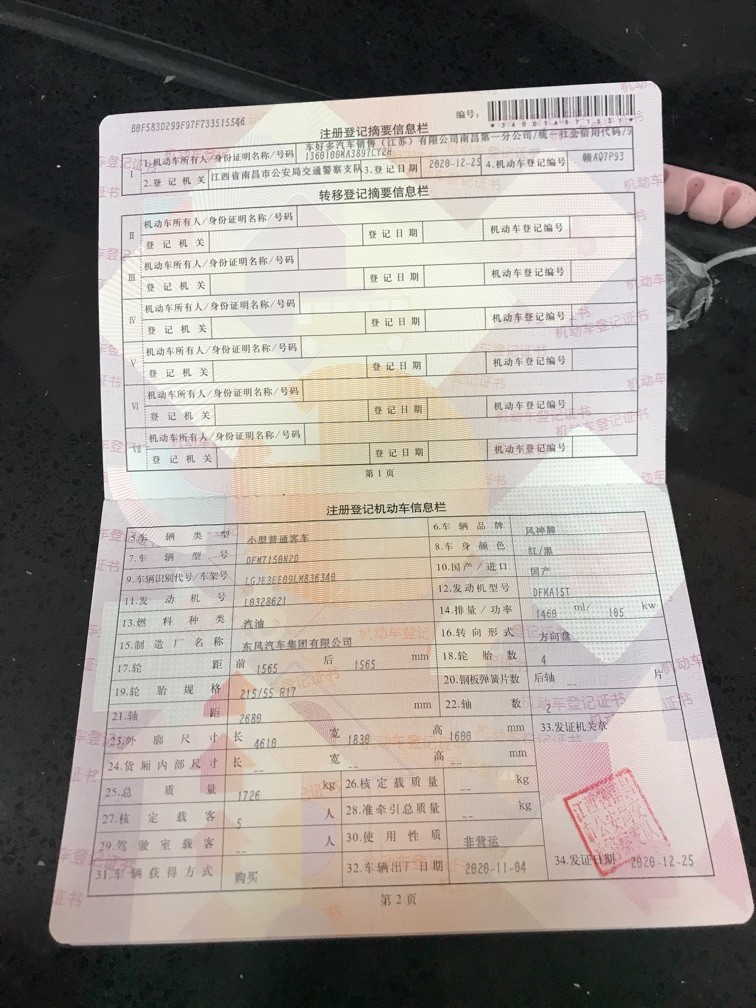 B0F583D299F97F7335155
编号:
注册登记摘要信息栏
I 1.机动车所有人/身份证明名称/号码 车好多汽车销售(江苏)有限公司南昌第一分公司/统一社会信用代码/9
1360100MA3897CY2H
2.登记机关 江西省南昌市公安局交通警察支队 3.登记日期 2020-12-25 4.机动车登记编号 赣AQ7P93
转移登记摘要信息栏
II 机动车所有人/身份证明名称/号码
登记机关 登记日期 机动车登记编号
III 机动车所有人/身份证明名称/号码
登记机关 登记日期 机动车登记编号
IV 机动车所有人/身份证明名称/号码
登记机关 登记日期 机动车登记编号
V 机动车所有人/身份证明名称/号码
登记机关 登记日期 机动车登记编号
VI 机动车所有人/身份证明名称/号码
登记机关 登记日期 机动车登记编号
VII 机动车所有人/身份证明名称/号码
登记机关 登记日期 机动车登记编号
第1页
注册登记机动车信息栏
5.车辆类型 小型普通客车 6.车辆品牌 风神牌
7.车辆型号 DFM7150H2D 8.车身颜色 红/黑
9.车辆识别代号/车架号 LGJE3EE09LM836340 10.国产/进口 国产
11.发动机号 L0328621 12.发动机型号 DFMA15T
13.燃料种类 汽油 14.排量/功率 1460 ml/ 105 kw
15.制造厂名称 东风汽车集团有限公司 16.转向形式 方向盘
17.轮距 前 1565 后 1565 mm 18.轮胎数 4
19.轮胎规格 215/55 R17 20.钢板弹簧片数 后轴 -- 片
21.轴距 2680 mm 22.轴数 2
23.外廓尺寸 长 4610 宽 1830 高 1600 mm 33.发证机关章
24.货厢内部尺寸 长 -- 宽 -- 高 -- mm
25.总质量 1726 kg 26.核定载质量 -- kg
27.核定载客 5 人 28.准牵引总质量 -- kg
29.驾驶室载客 -- 人 30.使用性质 非营运
31.车辆获得方式 购买 32.车辆出厂日期 2020-11-04 34.发证日期 2020-12-25
第2页